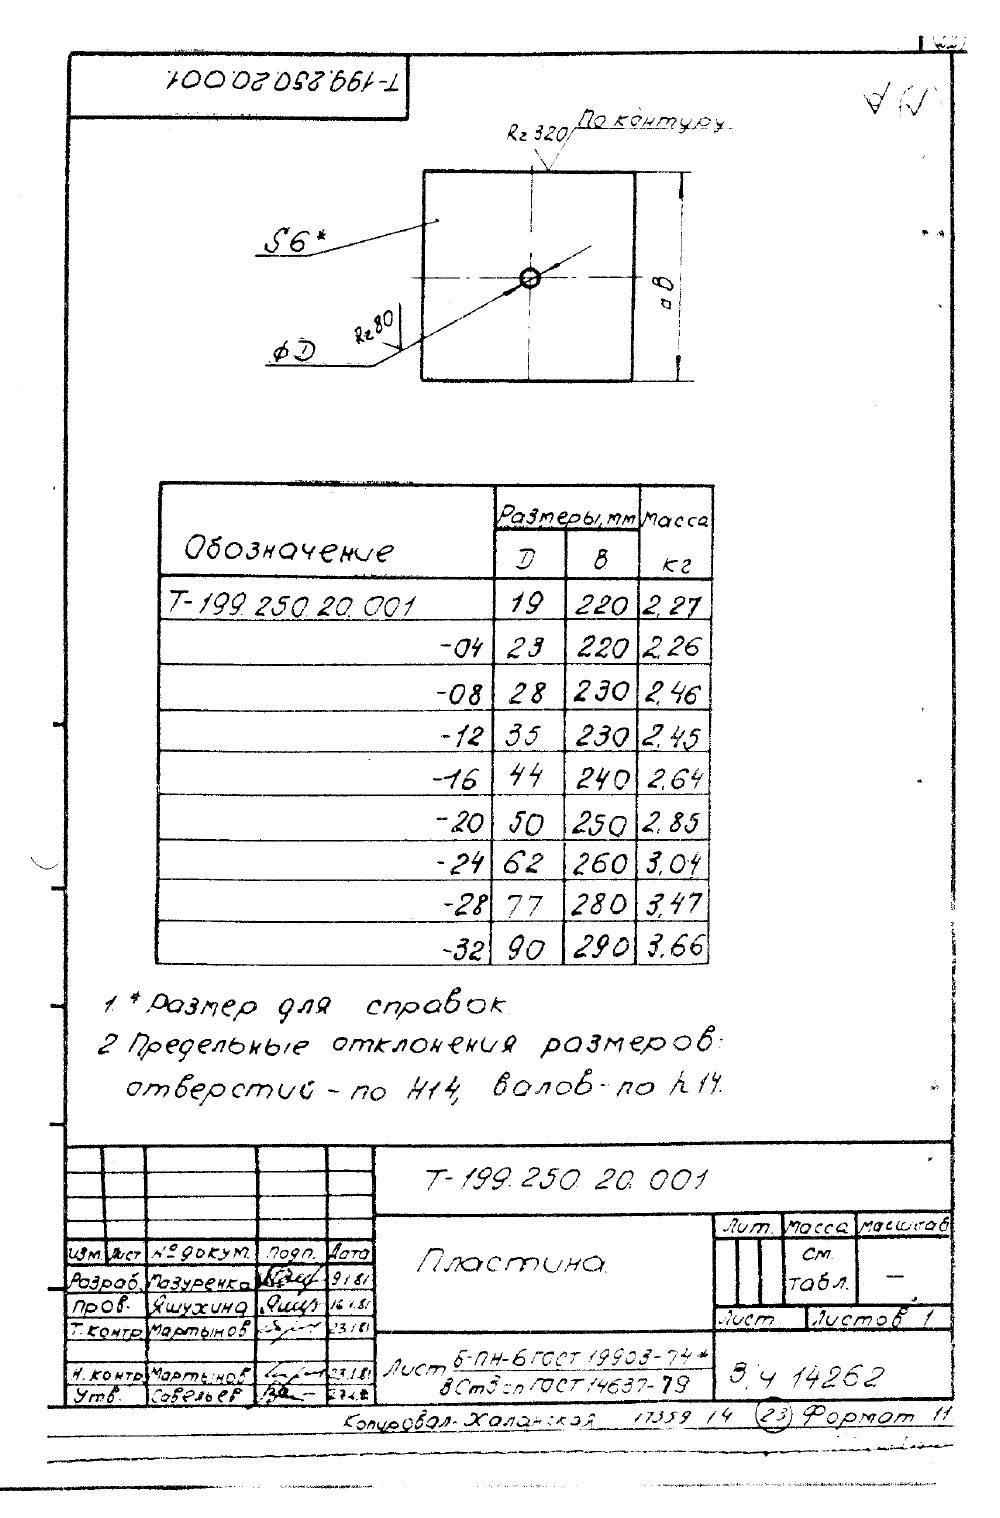 Т-199.250.20.001
Rz 320
По контуру
S6*
Rz 80
⌀D
□ В
Обозначение Размеры, мм Масса кг
D В
Т-199.250.20.001 19 220 2,27
-04 23 220 2,26
-08 28 230 2,46
-12 35 230 2,45
-16 44 240 2,64
-20 50 250 2,85
-24 62 260 3,04
-28 77 280 3,47
-32 90 290 3,66
1. * Размер для справок.
2 Предельные отклонения размеров:
отверстий - по Н14, валов - по h14.
Т-199.250.20.001
Изм. Лист № докум. Подп. Дата
Разраб. Мазуренко 9.1.81
Пров. Яшухина 16.1.81
Т.контр. Мартынов 23.1.81
Н.контр. Мартынов 23.1.81
Утв. Савельев
Пластина
Лит. Масса Масштаб
см. табл. —
Лист Листов 1
Лист Б-ПН-6 ГОСТ 19903-74*
ВСт3сп ГОСТ 14637-79
З.ч 14262
Копировал- Халанская 17359 14 23 Формат 11